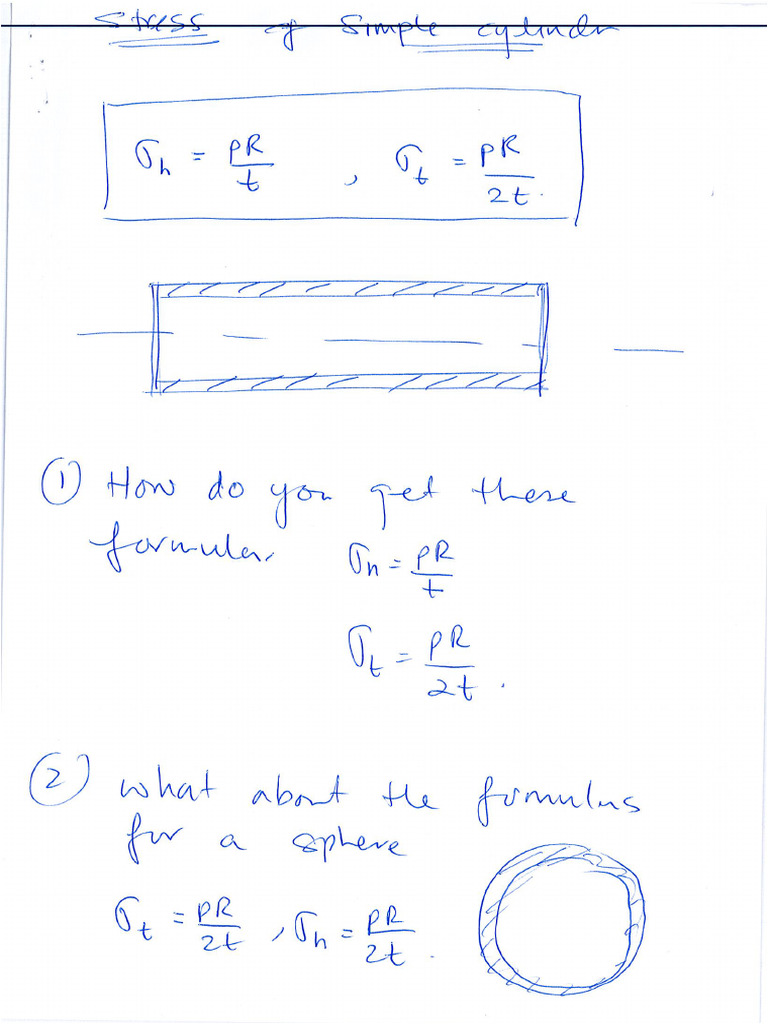 Stress of Simple cylinder
σh = pR/t , σt = pR/2t.
① How do you get these
formula. σh = pR/t
σt = pR/2t.
② What about the formulas
for a sphere
σt = pR/2t , σh = pR/2t.